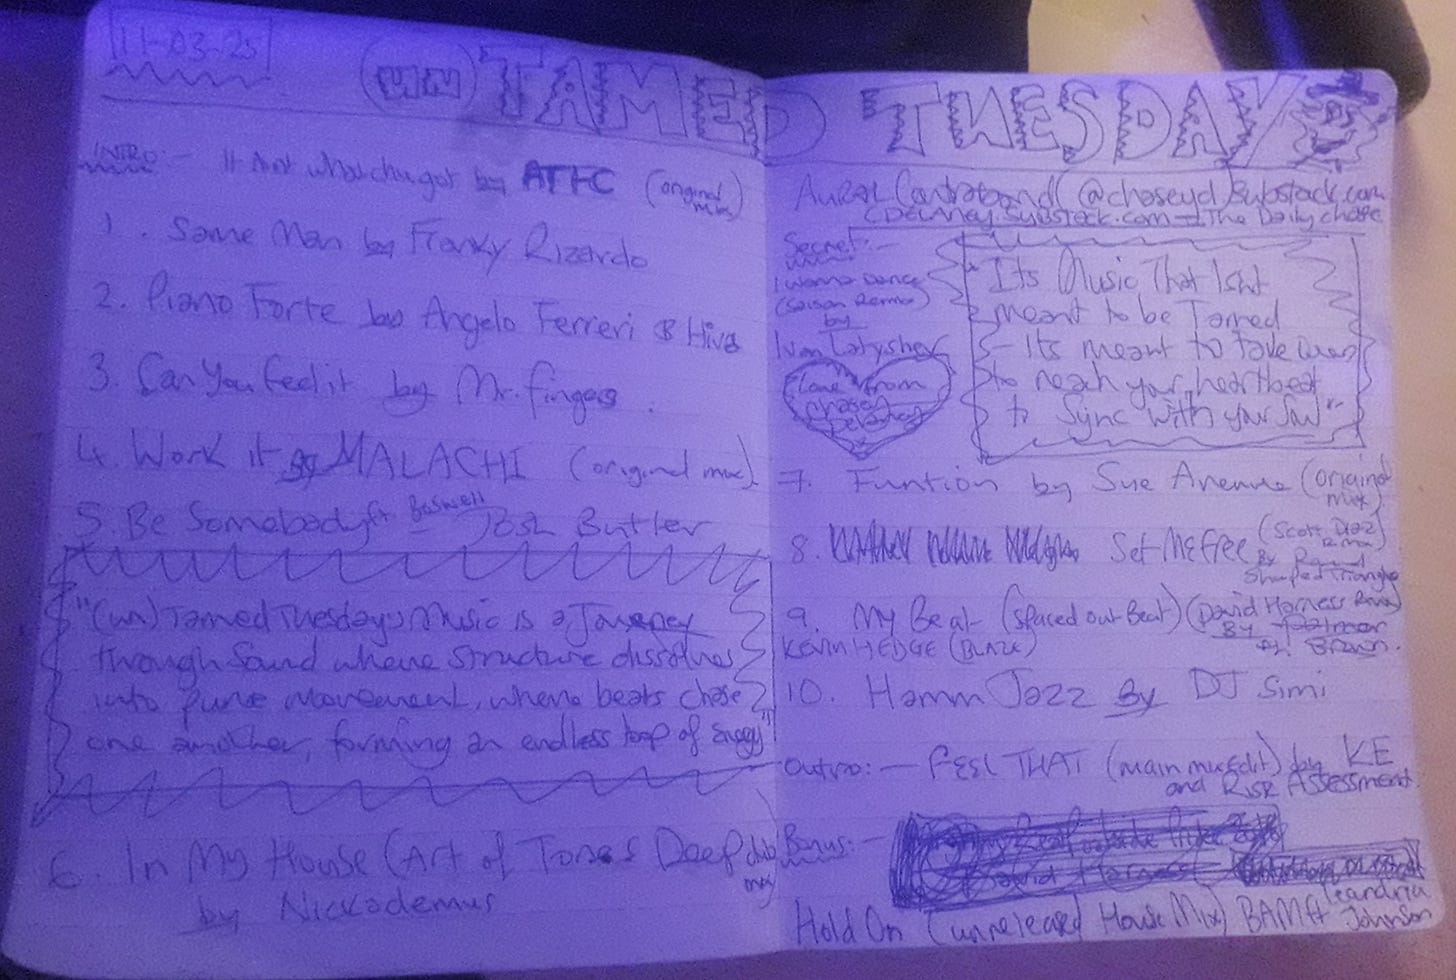 11-03-25
(un)TAMED TUESDAY
INTRO:- It Aint whatchugot by ATFC (original mix)
1. Same Man by Franky Rizardo
2. Piano Forte by Angelo Ferreri & Hiva
3. Can You Feel it by Mr. fingers.
4. Work it By MALACHI (original mix)
5. Be Somebody ft Baswell Josh Butler
"(un)Tamed Tuesdays Music is a Journey
through Sound where Structure dissolves
into pure movement, where beats chase
one another, forming an endless loop of energy"
6. In My House (Art of Tones Deep dub mix)
by Nickodemus
Aural Contraband (@chaseyd)Substack.com
(Delaney.Substack.com - The Daily chase
Secret:-
I wanna Dance
(Saison Remix)
by
Ivan Latyshev
Love from
chasey
Delaney
"Its Music That Isnt
meant to be Tamed
- Its meant to take over
to reach your heartbeat
to Sync With your Soul"
7. Funtion by Sue Avenue (original mix)
8. Set Me free (Scott Diaz Remix)
By Round
Shaped Triangle
9. My Beat (Spaced out Beat) (David Harness Remix)
By
KEVIN HEDGE (BLAZE)
10. Hamm Jazz By DJ Simi
Outro:- FEEL THAT (main mix edit) by KE
and Risk Assessment.
Bonus:-
Hold On (unreleased House Mix) BAM ft Leandria
Johnson